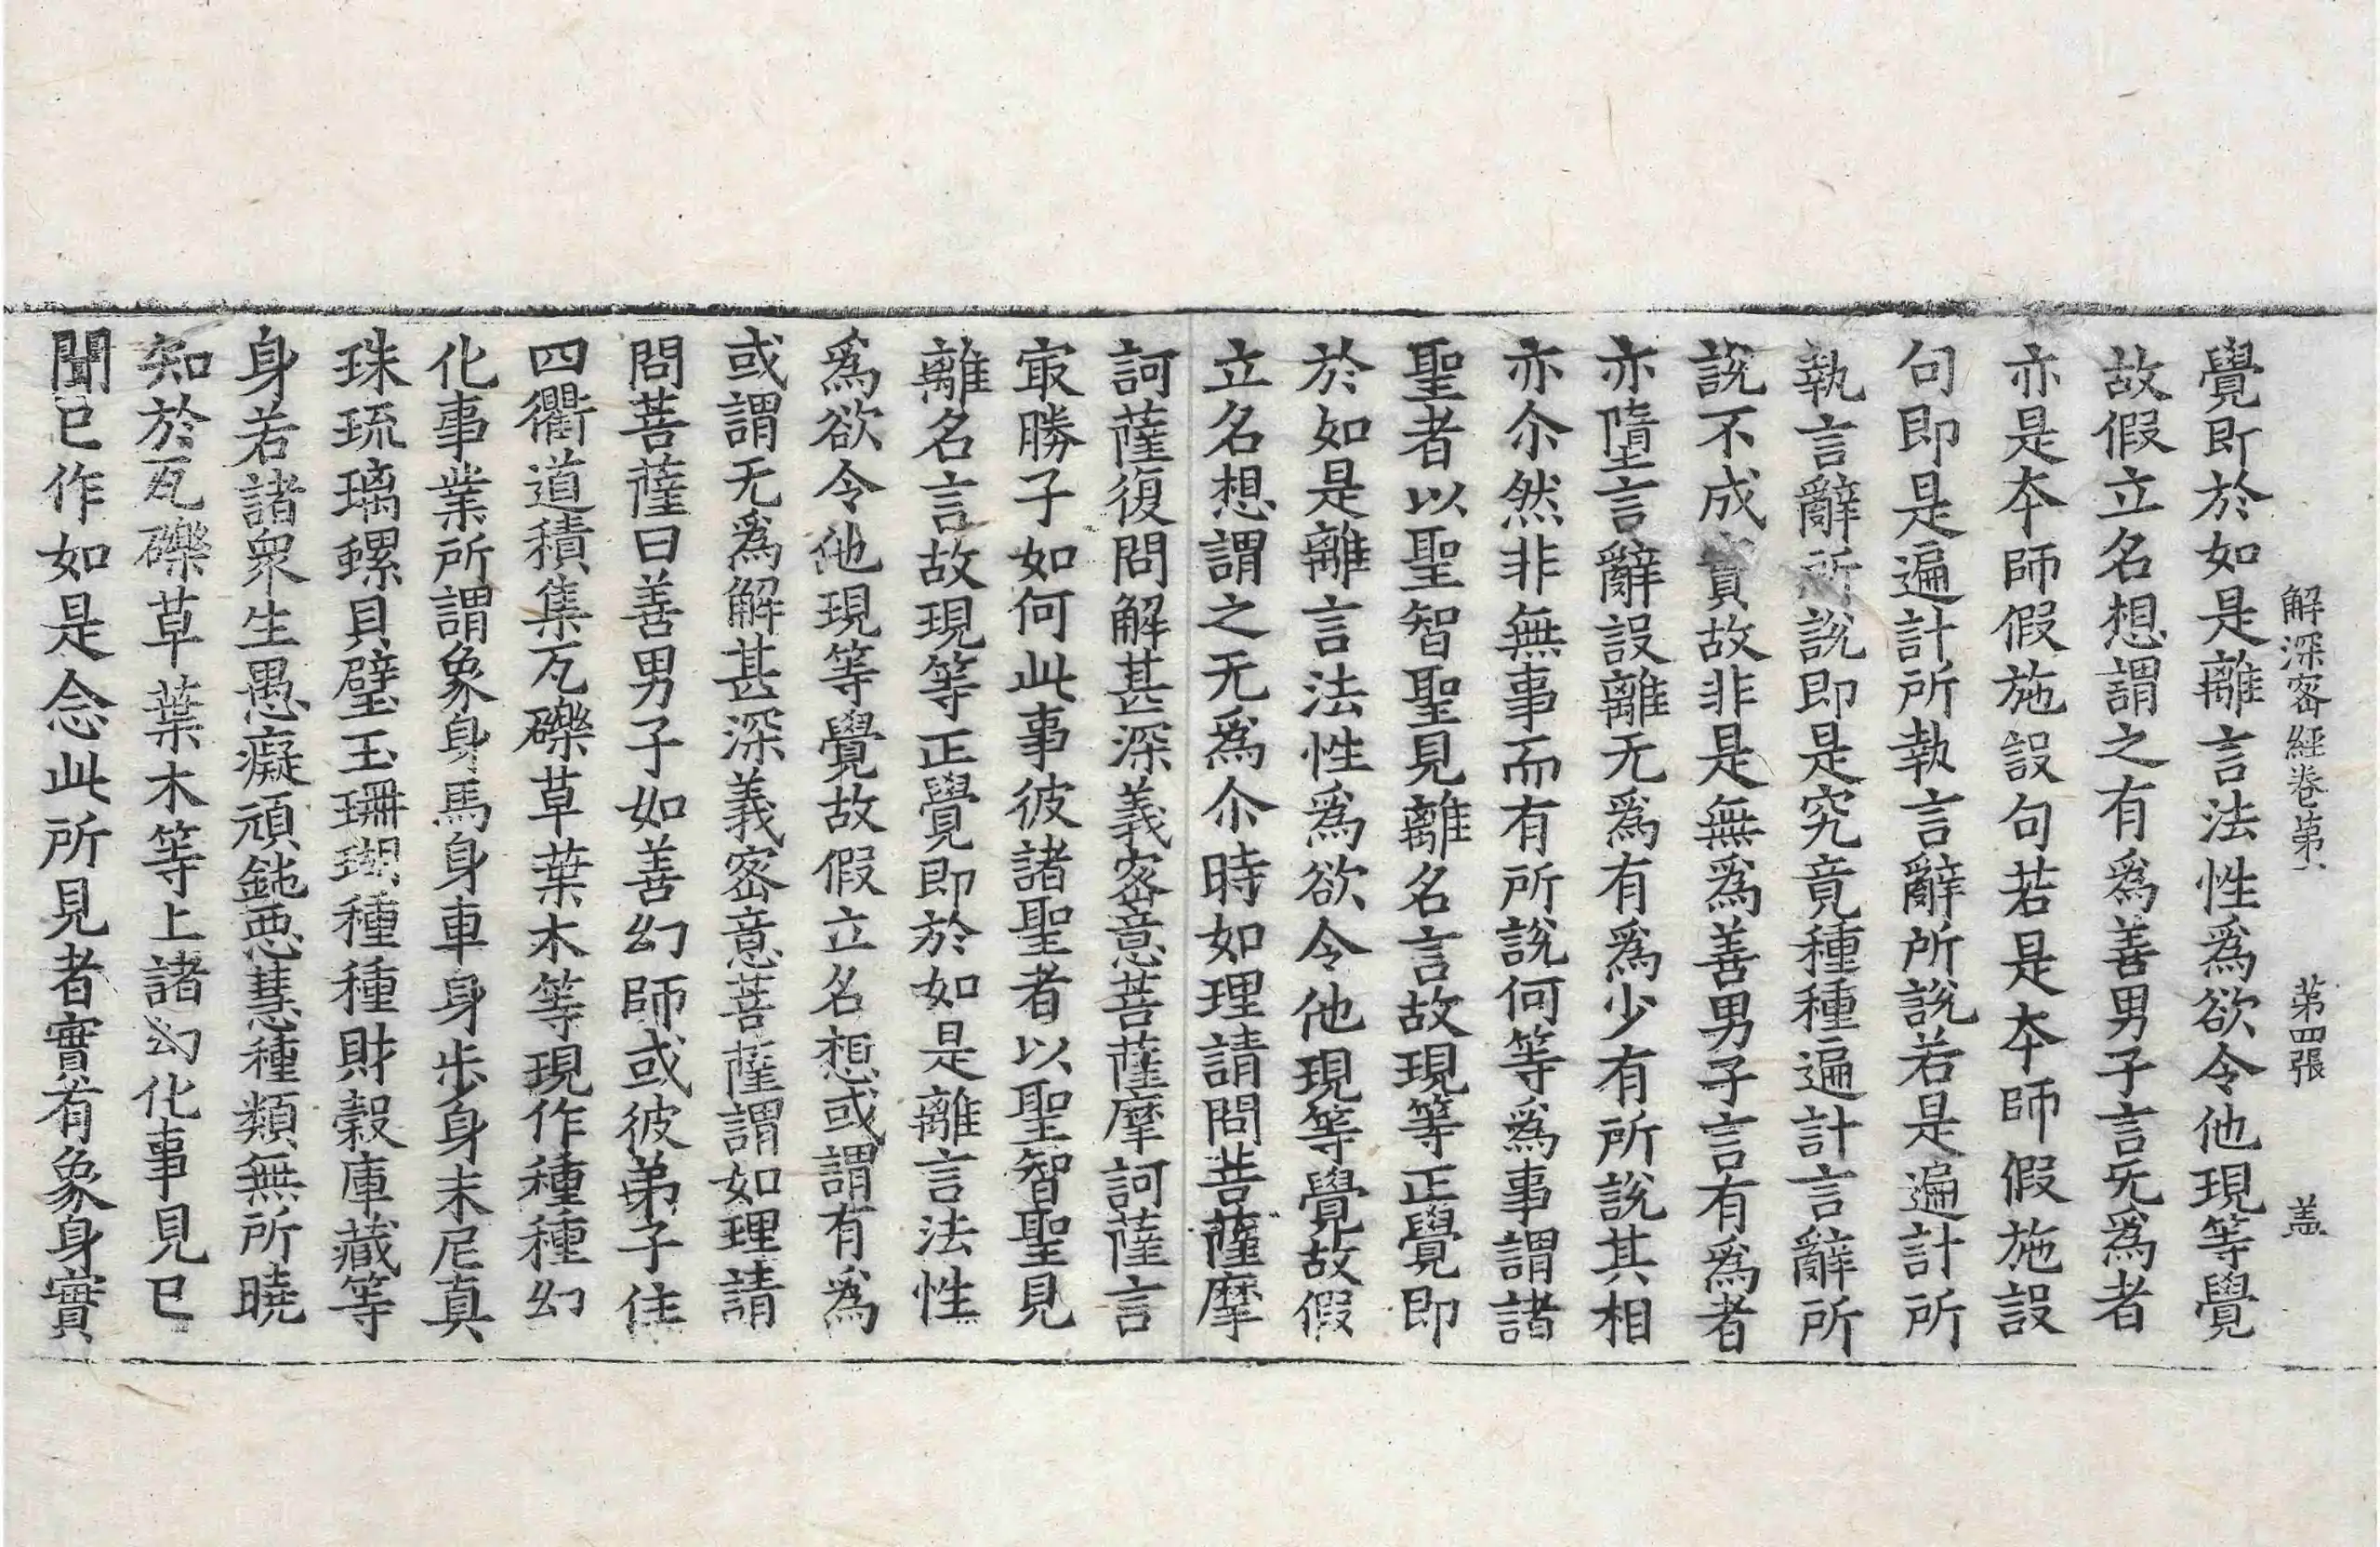 解深密經卷第一　第四張　盖
覺即於如是離言法性爲欲令他現等覺
故假立名想謂之有爲善男子言无爲者
亦是本師假施設句若是本師假施設
句即是遍計所執言辭所說若是遍計所
執言辭所說即是究竟種種遍計言辭所
說不成實故非是無爲善男子言有爲者
亦墮言辭設離无爲有爲少有所說其相
亦尒然非無事而有所說何等爲事謂諸
聖者以聖智聖見離名言故現等正覺即
於如是離言法性爲欲令他現等覺故假
立名想謂之无爲尒時如理請問菩薩摩
訶薩復問解甚深義密意菩薩摩訶薩言
㝡勝子如何此事彼諸聖者以聖智聖見
離名言故現等正覺即於如是離言法性
爲欲令他現等覺故假立名想或謂有爲
或謂无爲解甚深義密意菩薩謂如理請
問菩薩曰善男子如善幻師或彼弟子住
四衢道積集瓦礫草葉木等現作種種幻
化事業所謂象身馬身車身步身末尼真
珠琉璃螺貝璧玉珊瑚種種財穀庫藏等
身若諸衆生愚癡頑鈍惡慧種類無所曉
知於瓦礫草葉木等上諸幻化事見已
聞已作如是念此所見者實有象身實